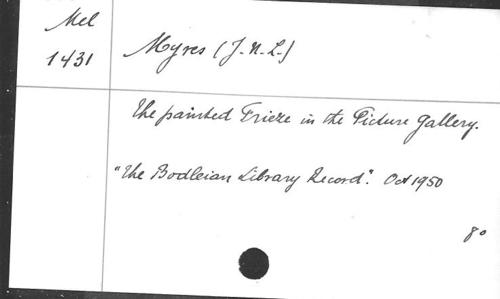 Mel
1431
Myres (J.N.L.)
The painted Frieze in the Picture Gallery.
"The Bodleian Library Record". Oct 1950
8o